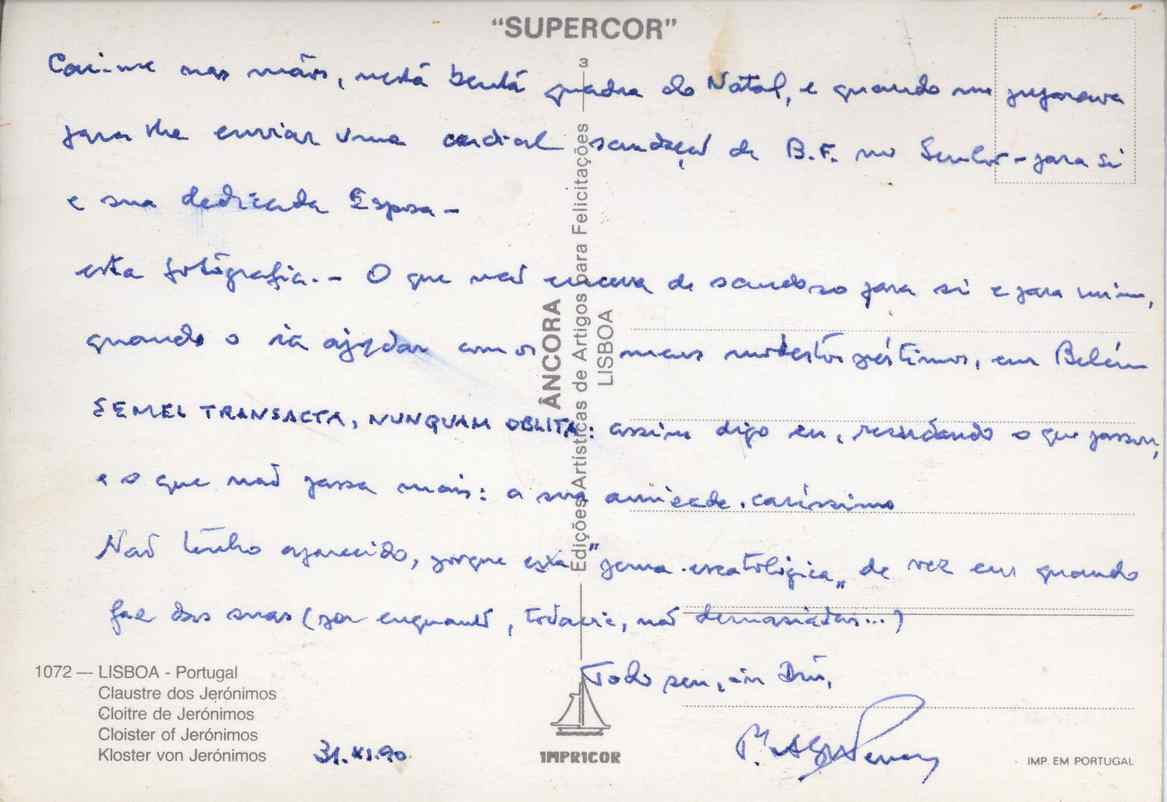 "SUPERCOR"
3
Cai-me nas mãos, nesta santa quadra do Natal, e quando me preparava
para lhe enviar uma cordial saudação de B.F. no Senhor - para si
e sua dedicada Esposa -
esta fotografia. - O que não encerra de saudoso para si e para mim,
quando o ia ajudar com os meus modestos préstimos, em Belém
SEMEL TRANSACTA, NUNQUAM OBLITA: assim digo eu, recordando o que passou,
e o que não passa mais: a sua amizade, caríssimo
Não tenho aparecido, porque esta "perna escatológica" de vez em quando
faz das suas (por enquanto, todavia, não demasiadas...)
Todo seu, in Dno,
ÂNCORA
Edições Artísticas de Artigos para Felicitações
LISBOA
1072 — LISBOA - Portugal
Claustre dos Jerónimos
Cloitre de Jerónimos
Cloister of Jerónimos
Kloster von Jerónimos
31.XI.90
IMPRICOR
IMP. EM PORTUGAL